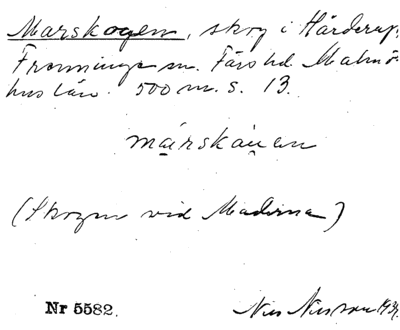 Marskogen, skog i Härderup,
Fränninge sn. Färs hd Malmö-
hus län. 500 m. S. 13.
márskåu̯en
(Skogen vid Maderna)
Nr 5582. Nils Nilsson